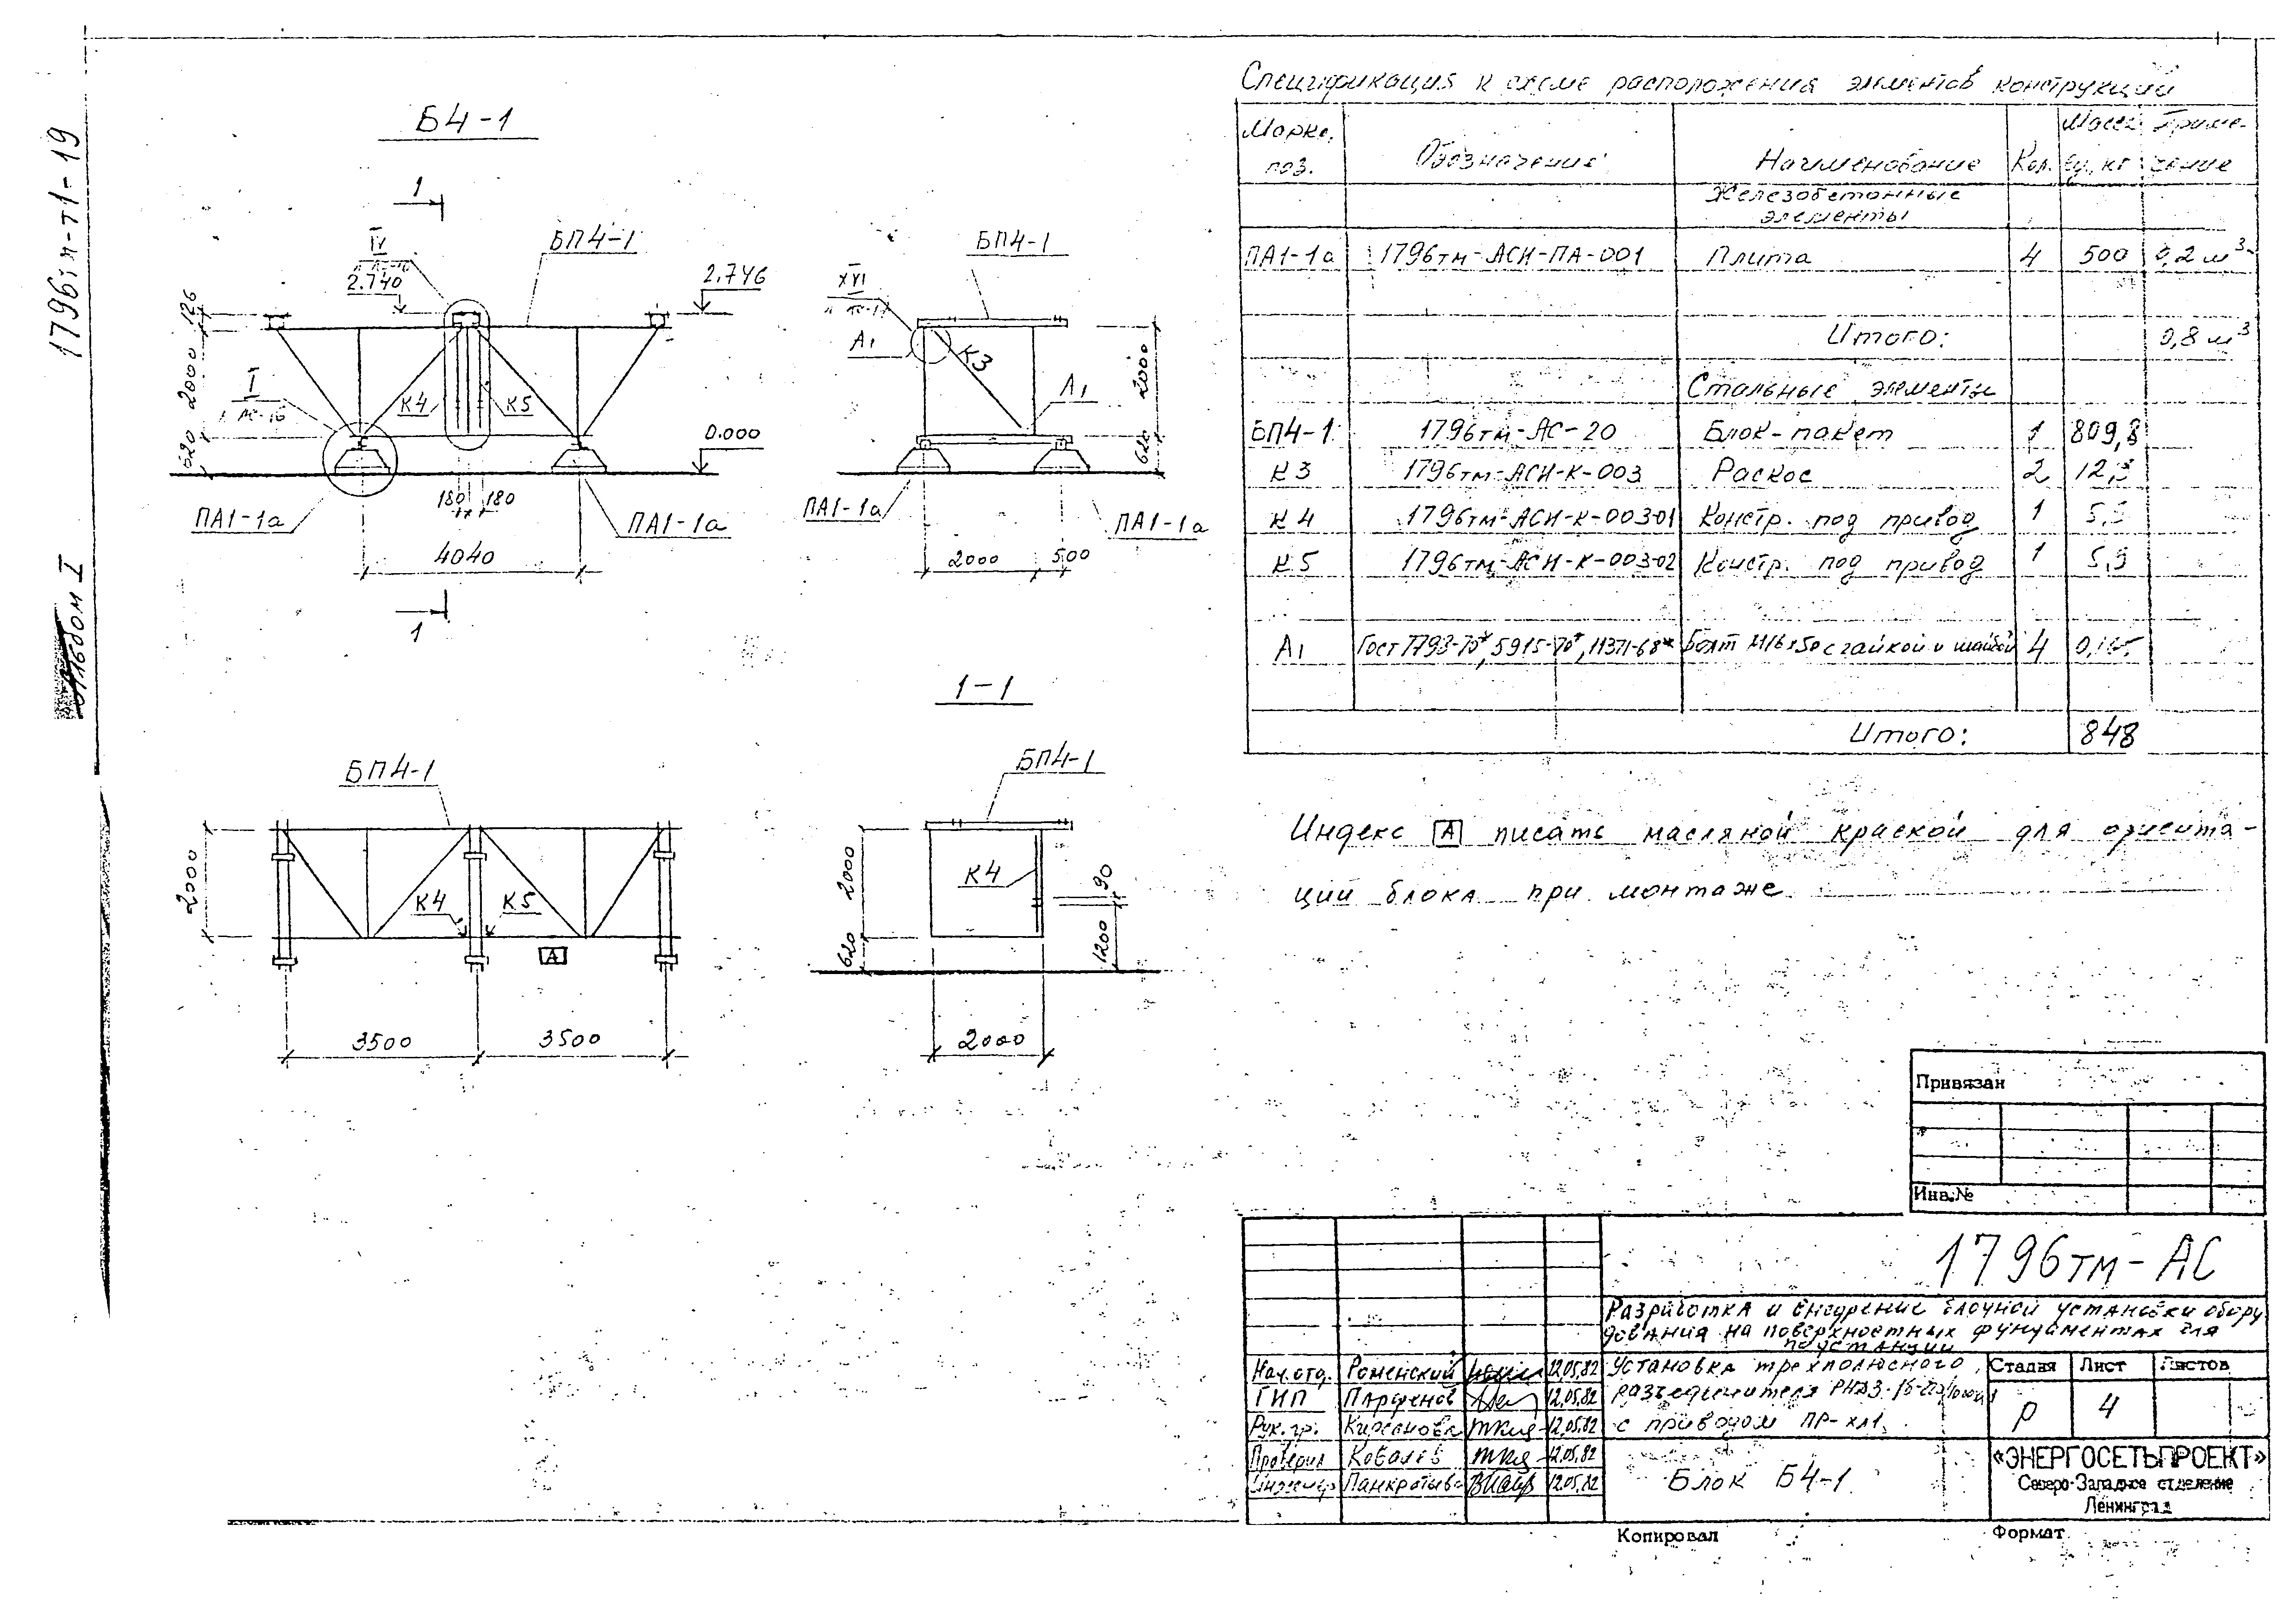 1796тм-т1-19
Альбом I
Б4-1
1
IV
БП4-1
2.740
2.746
126
2000
620
I
л АС-16
К4
К5
0.000
180
180
ПА1-1а
ПА1-1а
4040
1
БП4-1
XVI
А1
К3
А1
2000
620
ПА1-1а
ПА1-1а
2000
500
БП4-1
2000
К4
К5
А
3500
3500
1-1
БП4-1
2000
620
К4
90
1200
2000
Спецификация к схеме расположения элементов конструкций
Марка, поз.
Обозначение
Наименование
Кол.
Масса ед., кг
Приме-чание
Железобетонные
элементы
ПА1-1а 1796тм-АСИ-ПА-001 Плита 4 500 0,2 м³
Итого: 0,8 м³
Стальные элементы
БП4-1 1796тм-АС-20 Блок-пакет 1 809,8
К3 1796тм-АСИ-К-003 Раскос 2 12,3
К4 1796тм-АСИ-К-003-01 Констр. под привод 1
К5 1796тм-АСИ-К-003-02 Констр. под привод 1 5,9
А1 Гост 7798-70*, 5915-70*, 11371-68* Болт М16х50 с гайкой и шайбой 4
Итого: 848
Индекс А писать масляной краской для ориента-
ции блока при монтаже
Привязан
Инв.№
1796тм-АС
Разработка и внедрение блочной установки обору
дования на поверхностных фундаментах для
подстанции
Нач.отд. Роменский 12.05.82
ГИП Парфенов 12.05.82
Рук.гр. Кирсанова 12.05.82
Проверил Ковалев 12.05.82
Инженер Панкратьева 12.05.82
Установка трехполюсного
разъединителя
с приводом ПР-ХЛ1
Стадия Лист Листов
Р 4
Блок Б4-1
«ЭНЕРГОСЕТЬПРОЕКТ»
Северо-Западное отделение
Ленинград
Копировал
Формат